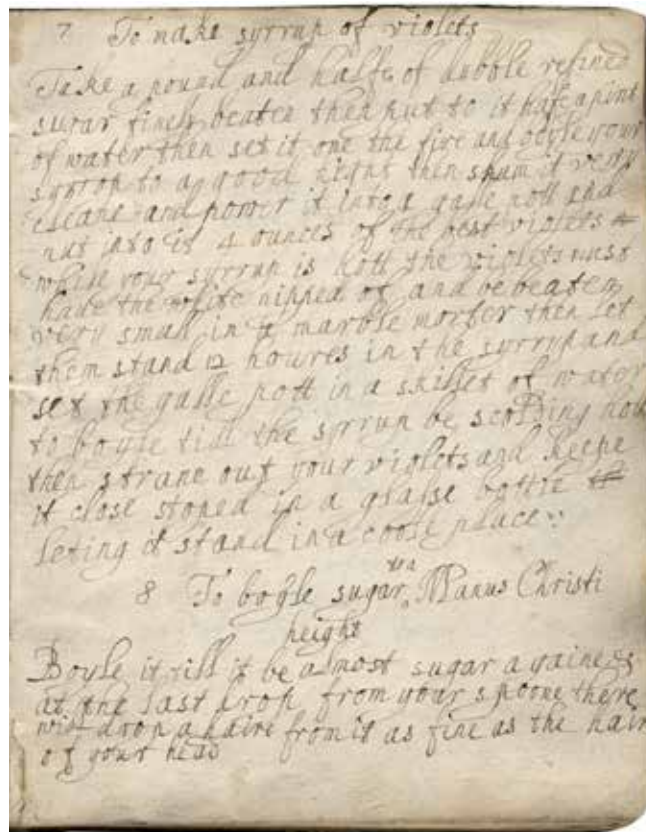 7 To make syrrup of violets
Take a pound and halfe of dubble refined
sugar finely beaten then put to it hafe a pint
of water then set it one the fire and boyle your
syrrop to a good hight then skum it very
cleane and power it into a galle pott and
put into it 4 ounces of the best violets
while your syrrup is hott the violets must
have the white nipped of and be beaten
very small in a marble morter then let
them stand 12 houres in the syrrup and
set the galle pott in a skillet of water
to boyle till the syrrup be scolding hott
then strane out your violets and keepe
it close stoped in a glasse bottle
leting it stand in a coole place
8 To boyle sugar to a Manus Christi
height
Boyle it till it be almost sugar againe &
at the last drop from your spoone there
will drop a haire from it as fine as the hair
of your head